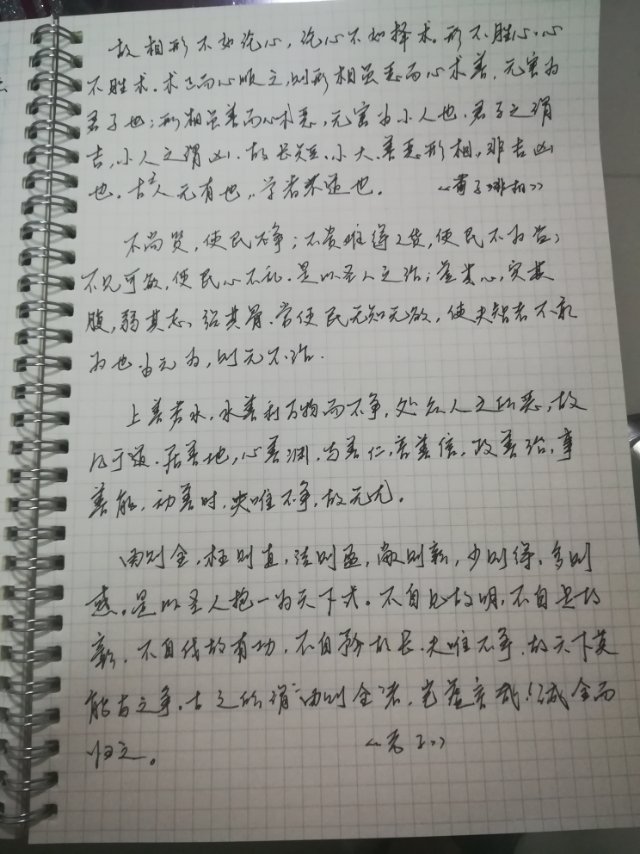 故相形不如论心，论心不如择术。形不胜心，心
不胜术。术正而心顺之，则形相虽恶而心术善，无害为
君子也；形相虽善而心术恶，无害为小人也。君子之谓
吉，小人之谓凶。故长短、小大、善恶形相，非吉凶
也。古之人无有也，学者不道也。 《荀子·非相》
不尚贤，使民不争；不贵难得之货，使民不为盗；
不见可欲，使民心不乱。是以圣人之治；虚其心，实其
腹，弱其志，强其骨。常使民无知无欲，使夫智者不敢
为也。为无为，则无不治。
上善若水，水善利万物而不争，处众人之所恶，故
几于道。居善地，心善渊，与善仁，言善信，政善治，事
善能，动善时。夫唯不争，故无尤。
曲则全，枉则直，洼则盈，敝则新，少则得，多则
惑。是以圣人抱一为天下式。不自见故明，不自是故
彰，不自伐故有功，不自矜故长。夫唯不争，故天下莫
能与之争。古之所谓"曲则全"者，岂虚言哉！诚全而
归之。 《老子》